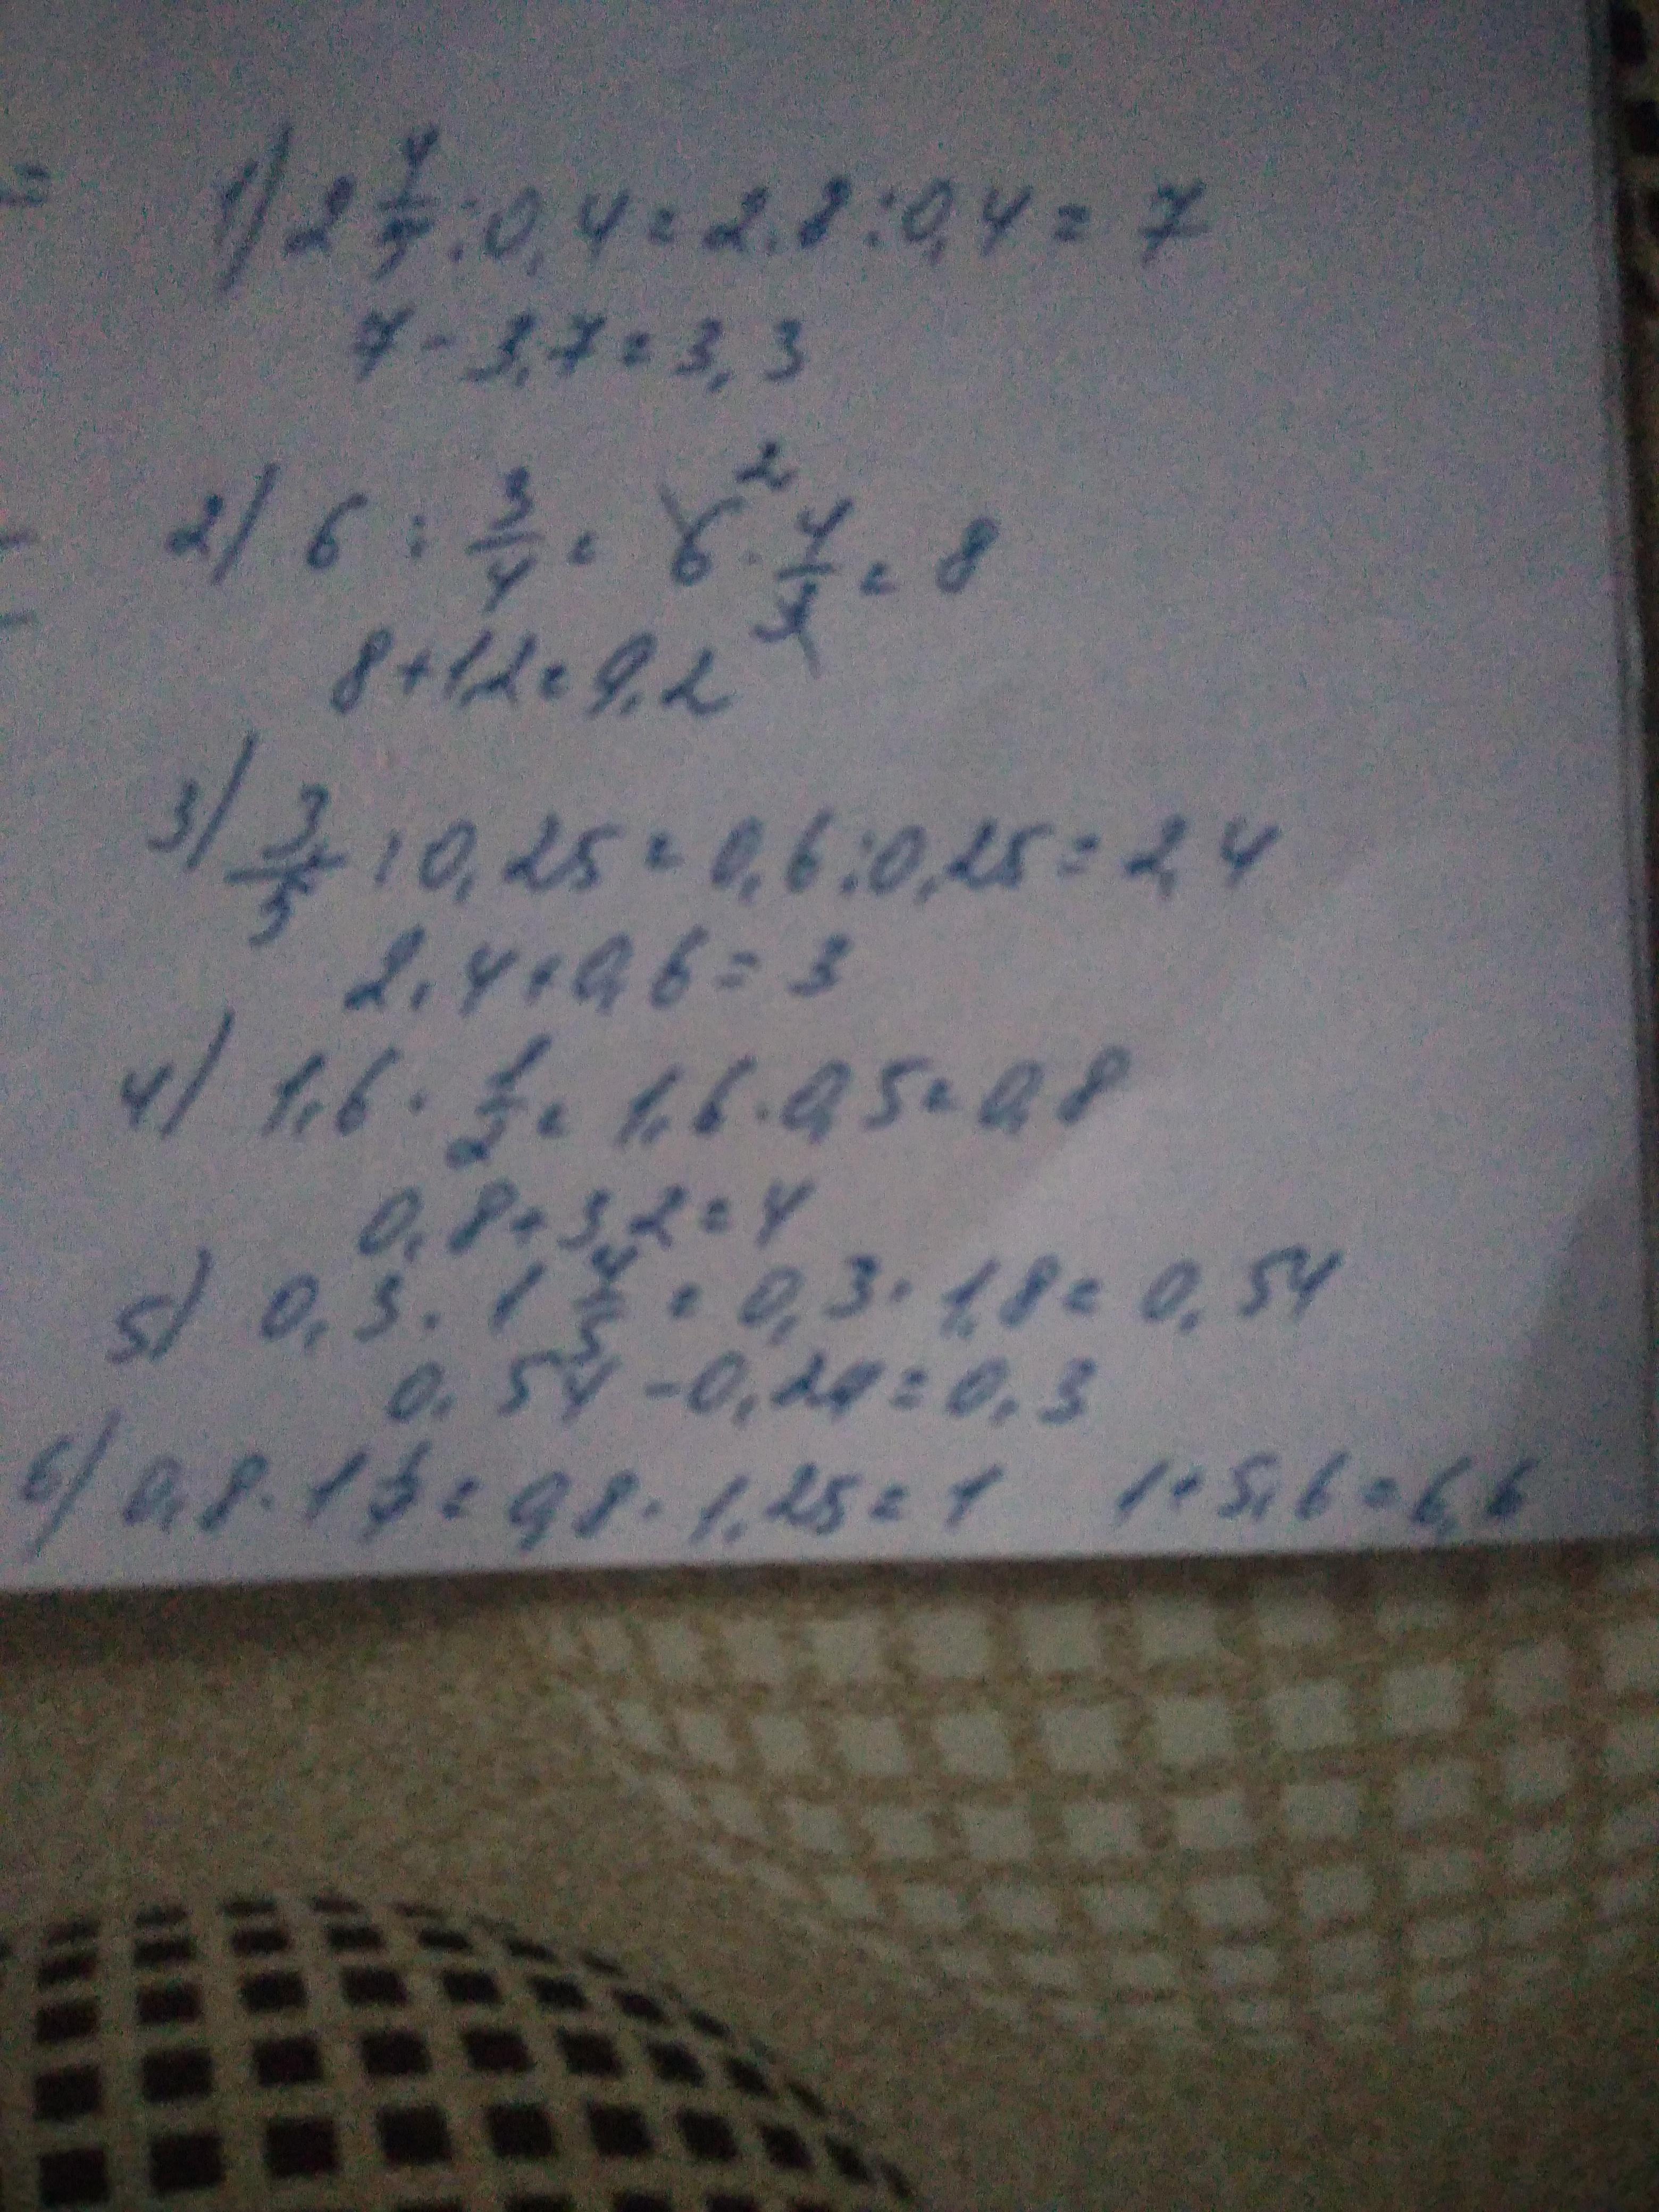 =
1) 2 4/5 : 0,4 = 2,8 : 0,4 = 7
7 - 3,7 = 3,3
2) 6 : 3/4 = 6 · 4/3 = 8
2
8 + 1,2 = 9,2
3) 3/5 : 0,25 = 0,6 : 0,25 = 2,4
2,4 + 0,6 = 3
4) 1,6 · 1/2 = 1,6 · 0,5 = 0,8
0,8 + 3,2 = 4
5) 0,3 · 1 4/5 = 0,3 · 1,8 = 0,54
0,54 - 0,24 = 0,3
6) 0,8 · 1 = 0,8 · 1,25 = 1 1 + 5,6 = 6,6